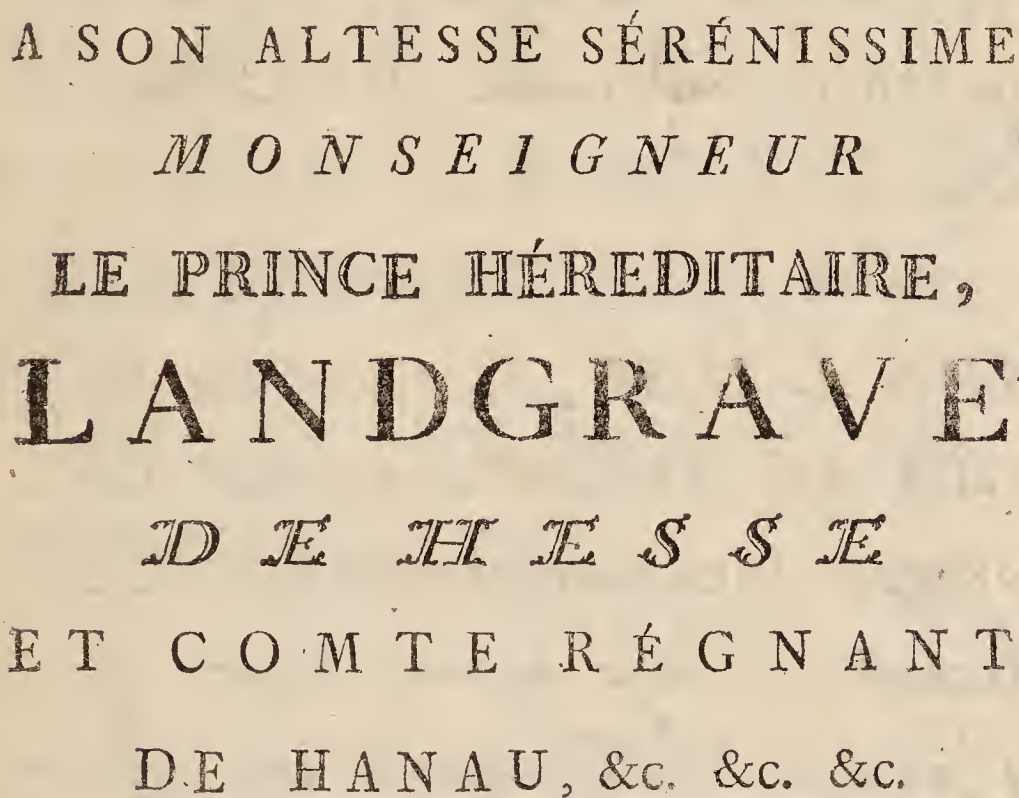 A SON ALTESSE SÉRÉNISSIME
MONSEIGNEUR
LE PRINCE HÉREDITAIRE,
LANDGRAVE
DE HESSE
ET COMTE RÉGNANT
DE HANAU, &c. &c. &c.